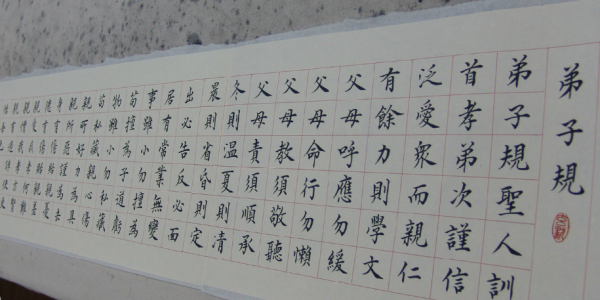 弟子規
弟子規聖人訓
首孝弟次謹信
泛愛眾而親仁
有餘力則學文
父母呼應勿緩
父母命行勿懶
父母教須敬聽
父母責須順承
冬則温夏則清
晨則省昏則定
出必告反必面
居有常業無變
事雖小勿擅為
苟擅為子道虧
物雖小勿私藏
苟私藏親心傷
親所好力為具
親所惡謹為去